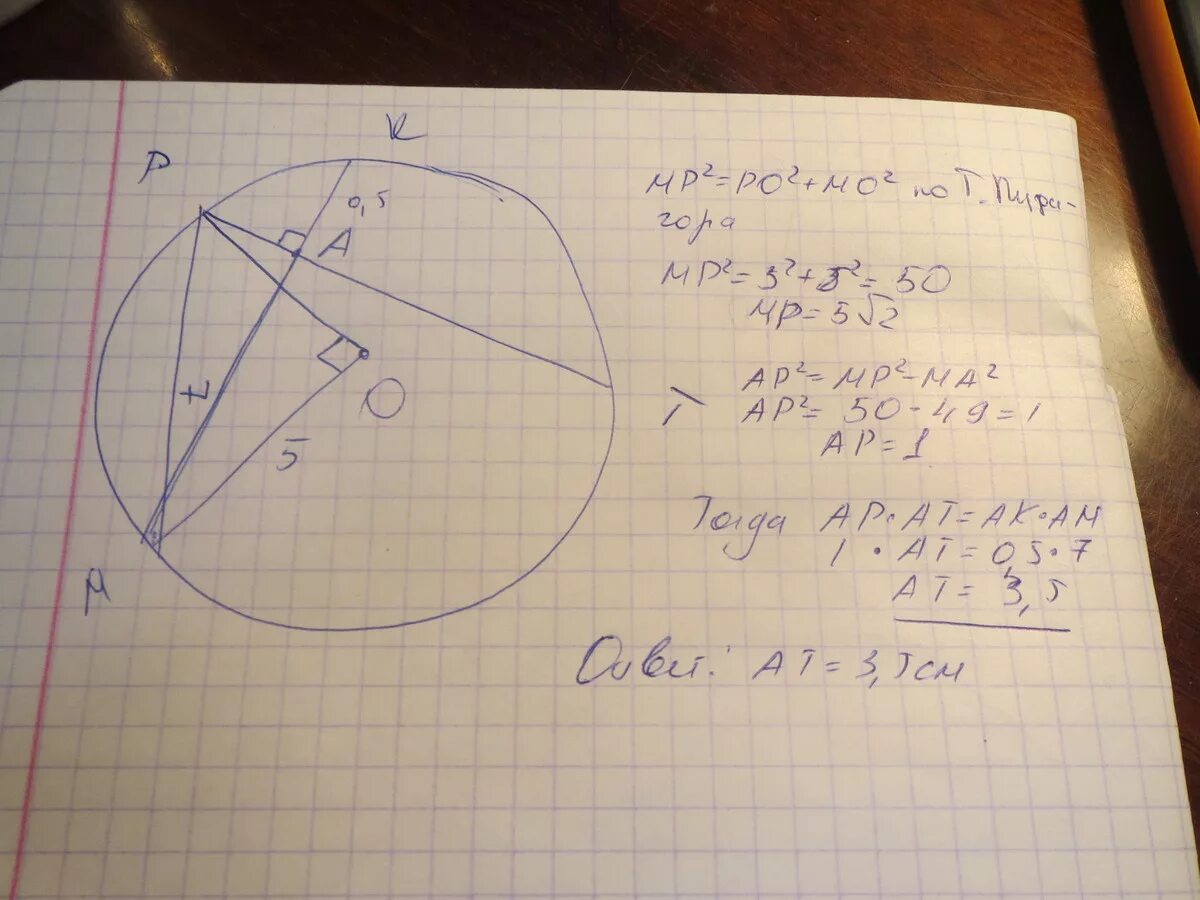 K
P
0,5
A
7
O
5
M
MP²=PO²+MO² по Т. Пифа-
гора
MP²=5²+5²=50
MP=5√2
AP²=MP²-MA²
AP²=50-49=1
AP=1
T
Тогда AP·AT=AK·AM
1·AT=0,5·7
AT=3,5
Ответ: AT=3,5см